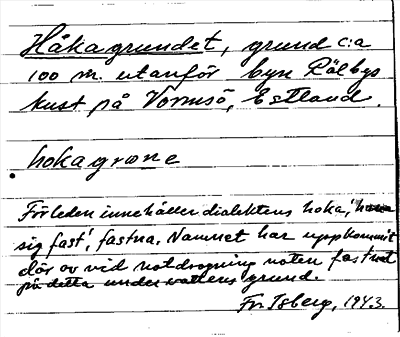 Håkagrundet, grund c:a
100 m. utanför byn Rälbys
kust på Vormsö, Estland.
hokagrone
Förleden innehåller dialektens hoka, 'haka
sig fast', fastna. Namnet har uppkommit
där av vid notdragning noten fastnat
på detta undervattensgrund.
Fr. Isberg, 1943.